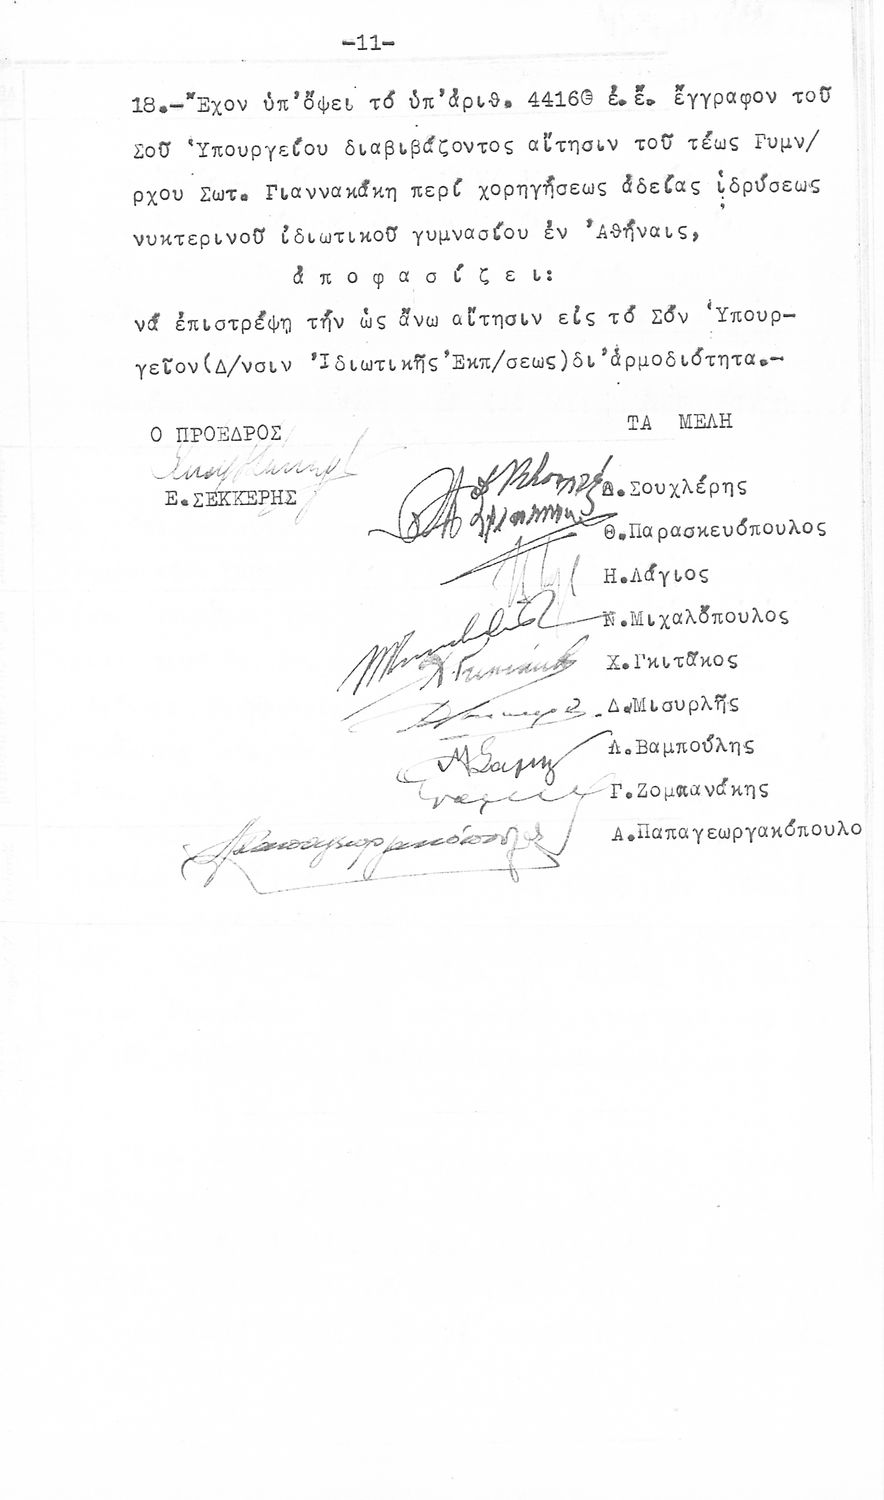 -11-
18.-Ἔχον ὑπ'ὄψει τό ὑπ'ἀριθ. 44160 ἐ.ἔ. ἔγγραφον τοῦ
Σοῦ Ὑπουργείου διαβιβάζοντος αἴτησιν τοῦ τέως Γυμν/
ρχου Σωτ. Γιαννακάκη περί χορηγήσεως ἀδείας ἱδρύσεως
νυκτερινοῦ ἰδιωτικοῦ γυμνασίου ἐν Ἀθήναις,
ἀ π ο φ α σ ί ζ ε ι:
νά ἐπιστρέψῃ τήν ὡς ἄνω αἴτησιν εἰς τό Σόν Ὑπουρ-
γεῖον(Δ/νσιν Ἰδιωτικῆς Ἐκπ/σεως)δι'ἁρμοδιότητα.-
Ο ΠΡΟΕΔΡΟΣ
Ε.ΣΕΚΚΕΡΗΣ
ΤΑ ΜΕΛΗ
Δ.Σουχλέρης
Θ.Παρασκευόπουλος
Η.Λάγιος
Ν.Μιχαλόπουλος
Χ.Γκιτάκος
Δ.Μισυρλῆς
Λ.Βαμπούλης
Γ.Ζομπανάκης
Α.Παπαγεωργακόπουλο